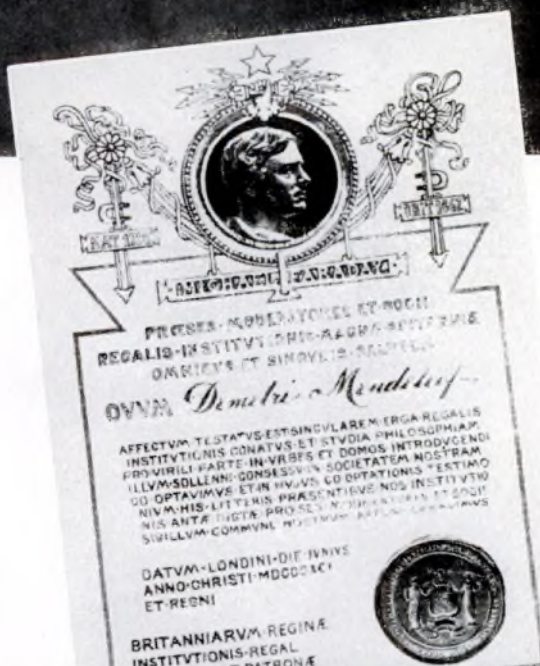 PRÆSES · MODERATORES ET SOCII
REGALIS · INSTITVTIONIS · MAGNÆ · BRITANNIÆ
OMNIBVS ET SINGVLIS · SALVTEM
QVVM Demetri Mendeleef
AFFECTVM TESTATVS EST SINGVLAREM ERGA REGALIS
INSTITVTIONIS CONATVS ET STVDIA PHILOSOPHIAM
PRO VIRILI PARTE IN VRBES ET DOMOS INTRODVCENDI
ILLVM SOLLENNI CONSESSV IN SOCIETATEM NOSTRAM
CO OPTAVIMVS ET IN HVIVS CO OPTATIONIS TESTIMO
NIVM HIS LITTERIS PRÆSENTIBVS NOS INSTITVTIO
NIS ANTÆ DICTÆ PRÆSES MODERATORES ET SOCII
SIGILLVM COMMVNE NOSTRVM
DATVM · LONDINI · DIE JVNIVS
ANNO · CHRISTI · MDCCCXCI
ET · REGNI
BRITANNIARVM · REGINÆ
INSTITVTIONIS · REGAL
PATRONÆ